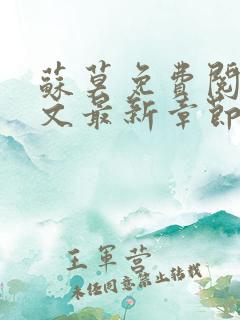 蘇暮免費閱
文最新章節
王軍营
未经同意禁止转载